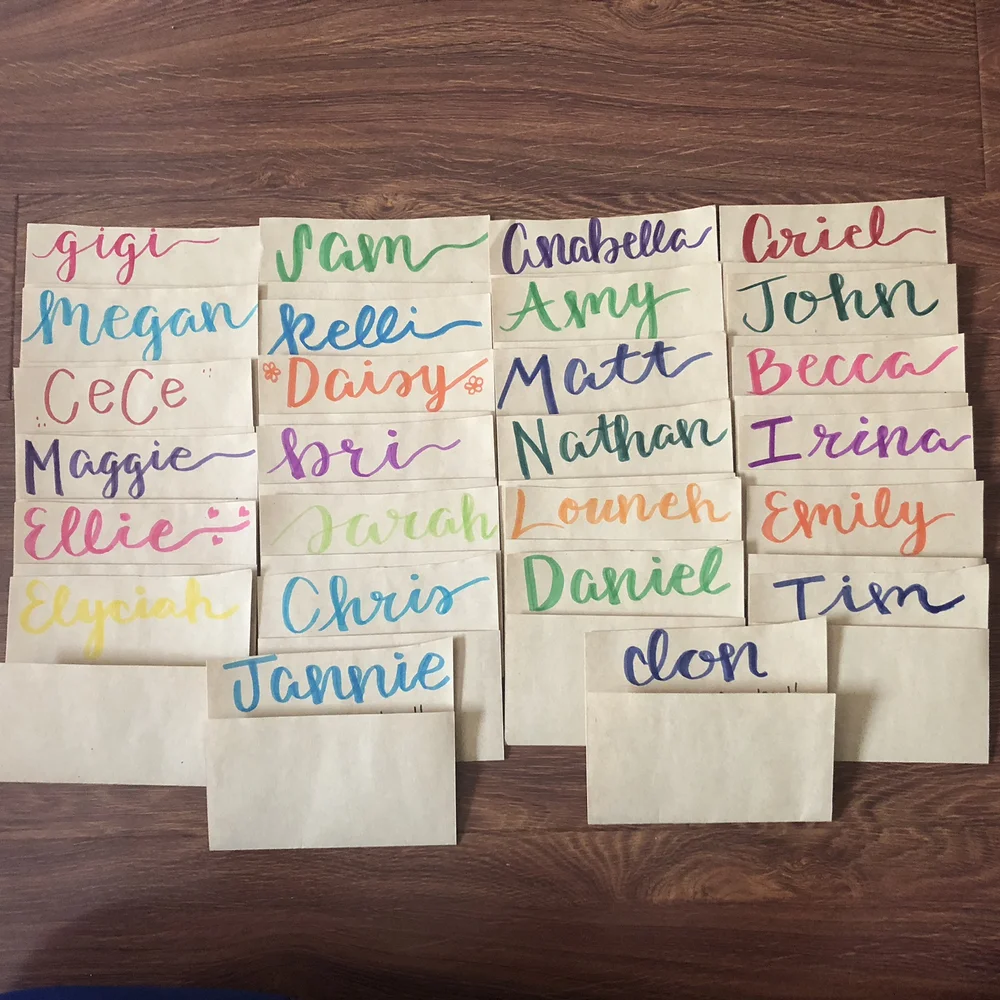 gigi
Sam
Anabella
Ariel
Megan
Kelli
Amy
John
CeCe
Daisy
Matt
Becca
Maggie
bri
Nathan
Irina
Ellie
Sarah
Louneh
Emily
Elyciah
Chris
Daniel
Tim
Jannie
don